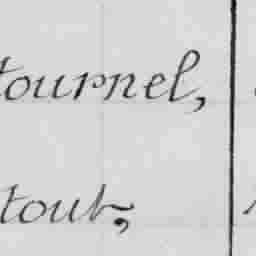 tournel,
tout,